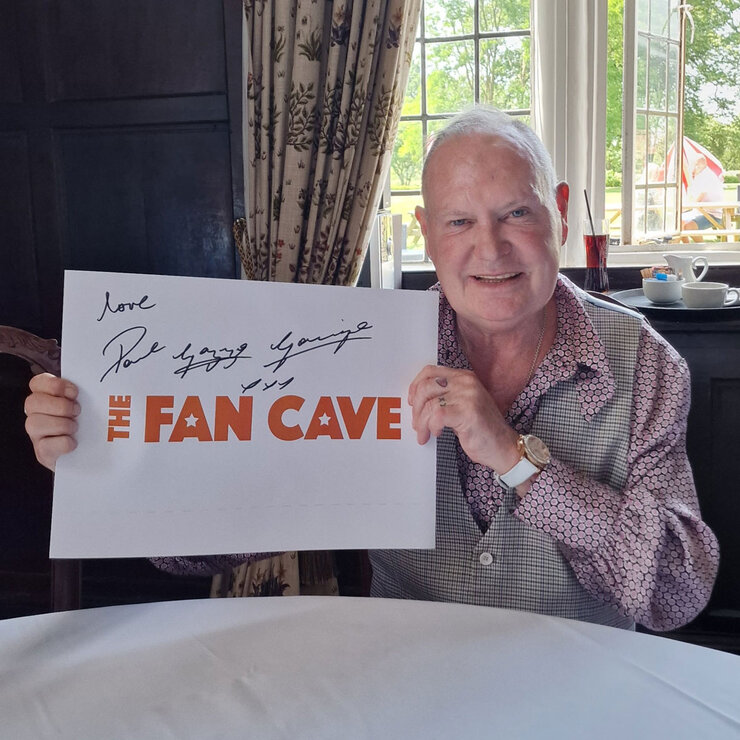 love
Paul Gazza Gascoigne
xxx
THE FAN CAVE